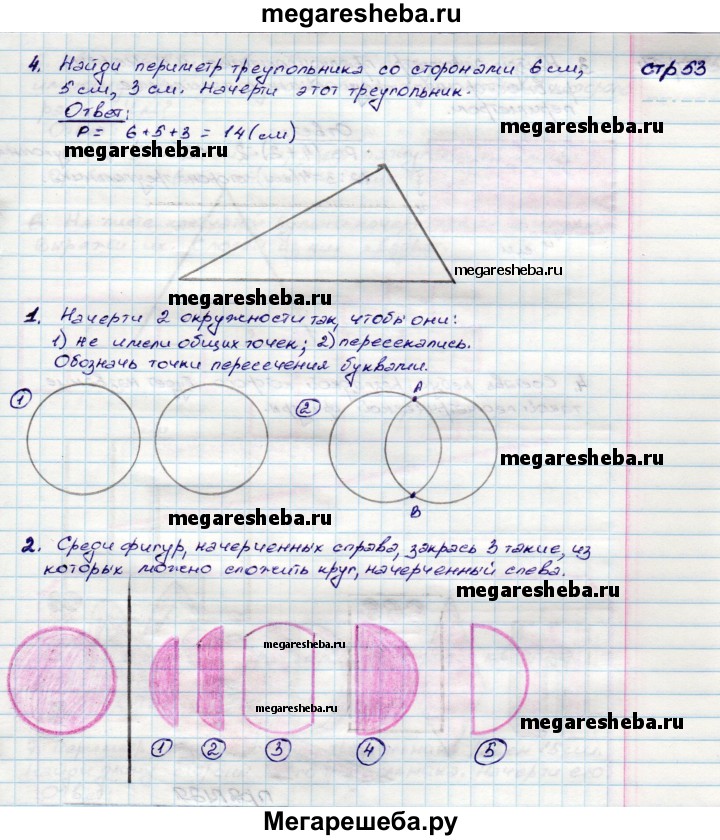 megaresheba.ru
стр 53
4. Найди периметр треугольника со сторонами 6 см,
5 см, 3 см. Начерти этот треугольник.
Ответ:
P = 6+5+3 = 14 (см)
megaresheba.ru
megaresheba.ru
megaresheba.ru
megaresheba.ru
1. Начерти 2 окружности так, чтобы они:
1) не имели общих точек; 2) пересекались.
Обозначь точки пересечения буквами.
1
2
A
B
megaresheba.ru
megaresheba.ru
2. Среди фигур, начерченных справа, закрась 3 такие, из
которых можно сложить круг, начерченный слева.
megaresheba.ru
megaresheba.ru
megaresheba.ru
megaresheba.ru
1 2 3 4 5
Мегарешеба.ру